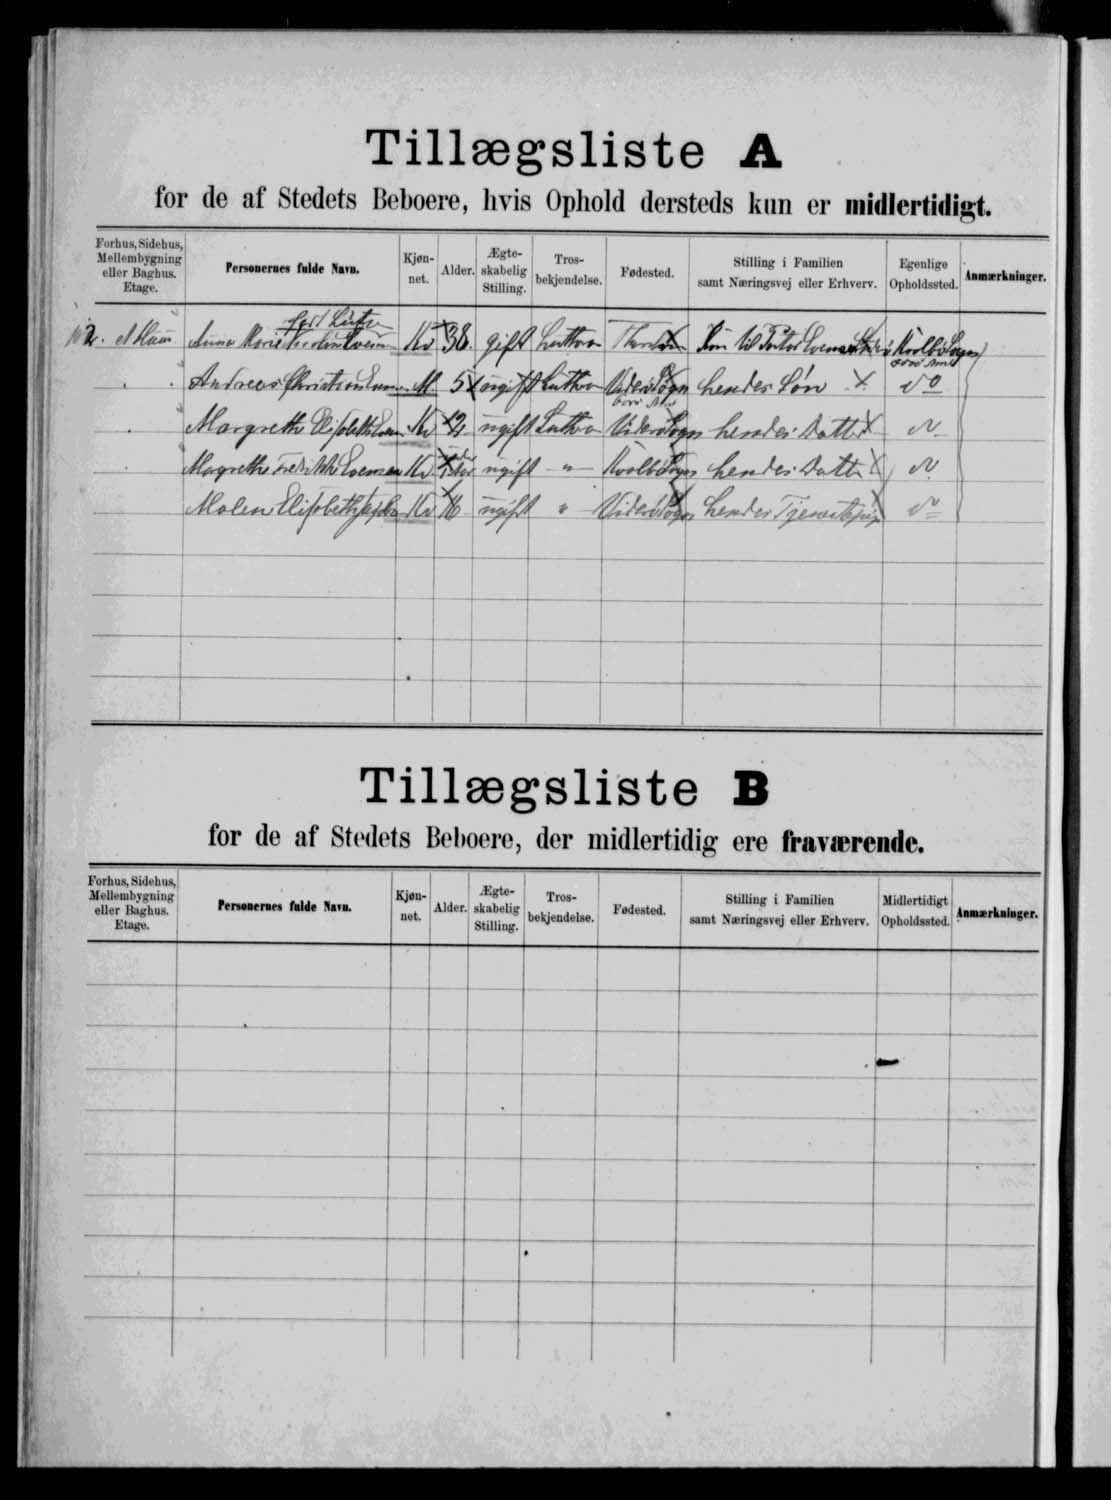 Tillægsliste A
for de af Stedets Beboere, hvis Ophold dersteds kun er midlertidigt.
Forhus, Sidehus, Mellembygning eller Baghus. Etage. Personernes fulde Navn. Kjøn-net. Alder. Ægte-skabelig Stilling. Tros-bekjendelse. Fødested. Stilling i Familien samt Næringsvej eller Erhverv. Egenlige Opholdssted. Anmærkninger.
Anna Marie Kv 38 gift Luthra Kone til
Andreas Christian M 5 ugift Luthra Viderø Sogn hendes Søn do
Margrethe Elisabeth Kv ugift Luthra Viderø Sogn hendes Datter do
Margrethe Fredrikke Evensen Kv ugift -"- hendes Datter do
Malen Elisabeth Kv 16 ugift " Viderø Sogn hendes do
Tillægsliste B
for de af Stedets Beboere, der midlertidig ere fraværende.
Forhus, Sidehus, Mellembygning eller Baghus. Etage. Personernes fulde Navn. Kjøn-net. Alder. Ægte-skabelig Stilling. Tros-bekjendelse. Fødested. Stilling i Familien samt Næringsvej eller Erhverv. Midlertidigt Opholdssted. Anmærkninger.